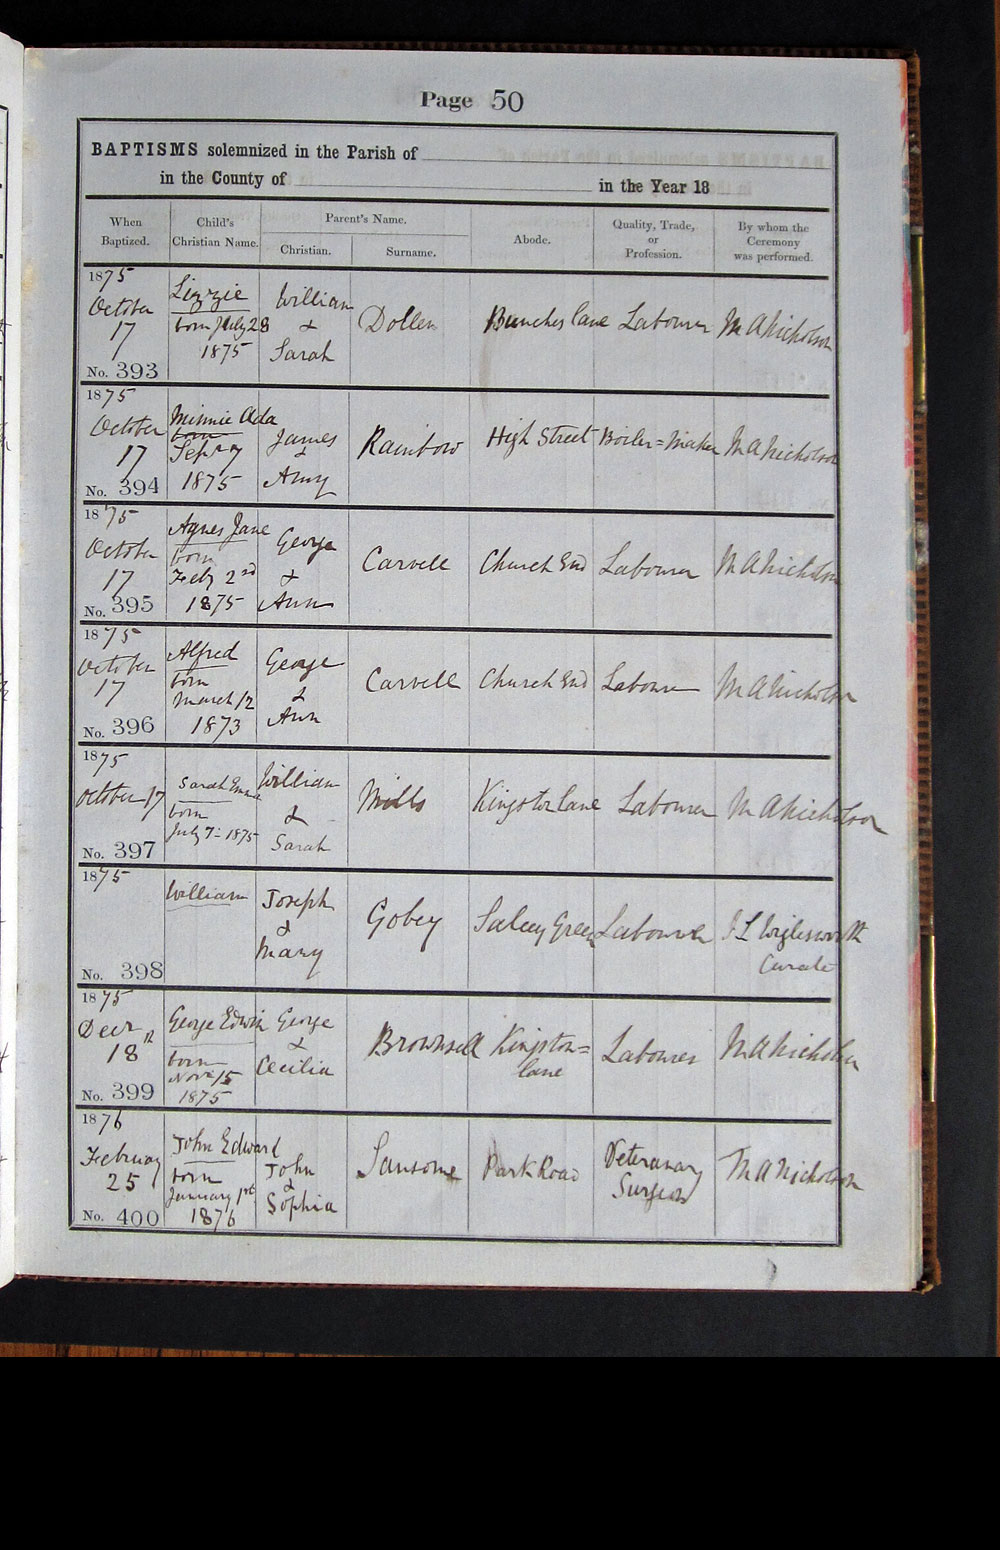 Page 50
BAPTISMS solemnized in the Parish of
in the County of in the Year 18
When Baptized.
Child's Christian Name.
Parent's Name.
Christian.
Surname.
Abode.
Quality, Trade, or Profession.
By whom the Ceremony was performed.
1875
October
17
No. 393
Lizzie
born July 28
1875
William
&
Sarah
Dollen
Bunches lane
Labourer
M A Nicholson
1875
October
17
No. 394
Minnie Ada
born
Sepr 7
1875
James
&
Amy
Rainbow
High Street
Boiler=Maker
M A Nicholson
1875
October
17
No. 395
Agnes Jane
born
Feby 2nd
1875
George
&
Ann
Carvell
Church End
Labourer
M A Nicholson
1875
October
17
No. 396
Alfred
born
March 12
1873
George
&
Ann
Carvell
Church End
Labourer
M A Nicholson
1875
October 17
No. 397
Sarah Emma
born
July 7= 1875
William
&
Sarah
Mills
Kingston lane
Labourer
M A Nicholson
1875
No. 398
William
Joseph
&
Mary
Gobey
Salcey Green
Labourer
J L Wiglesworth
Curate
1875
Decr
18th
No. 399
George Edwin
born
Novr 15
1875
George
&
Cecilia
Brownsell
Kingston=
lane
Labourer
M A Nicholson
1876
February
25
No. 400
John Edward
born
January 1st
1876
John
&
Sophia
Sansome
Park Road
Veteranary
Surgeon
M A Nicholson